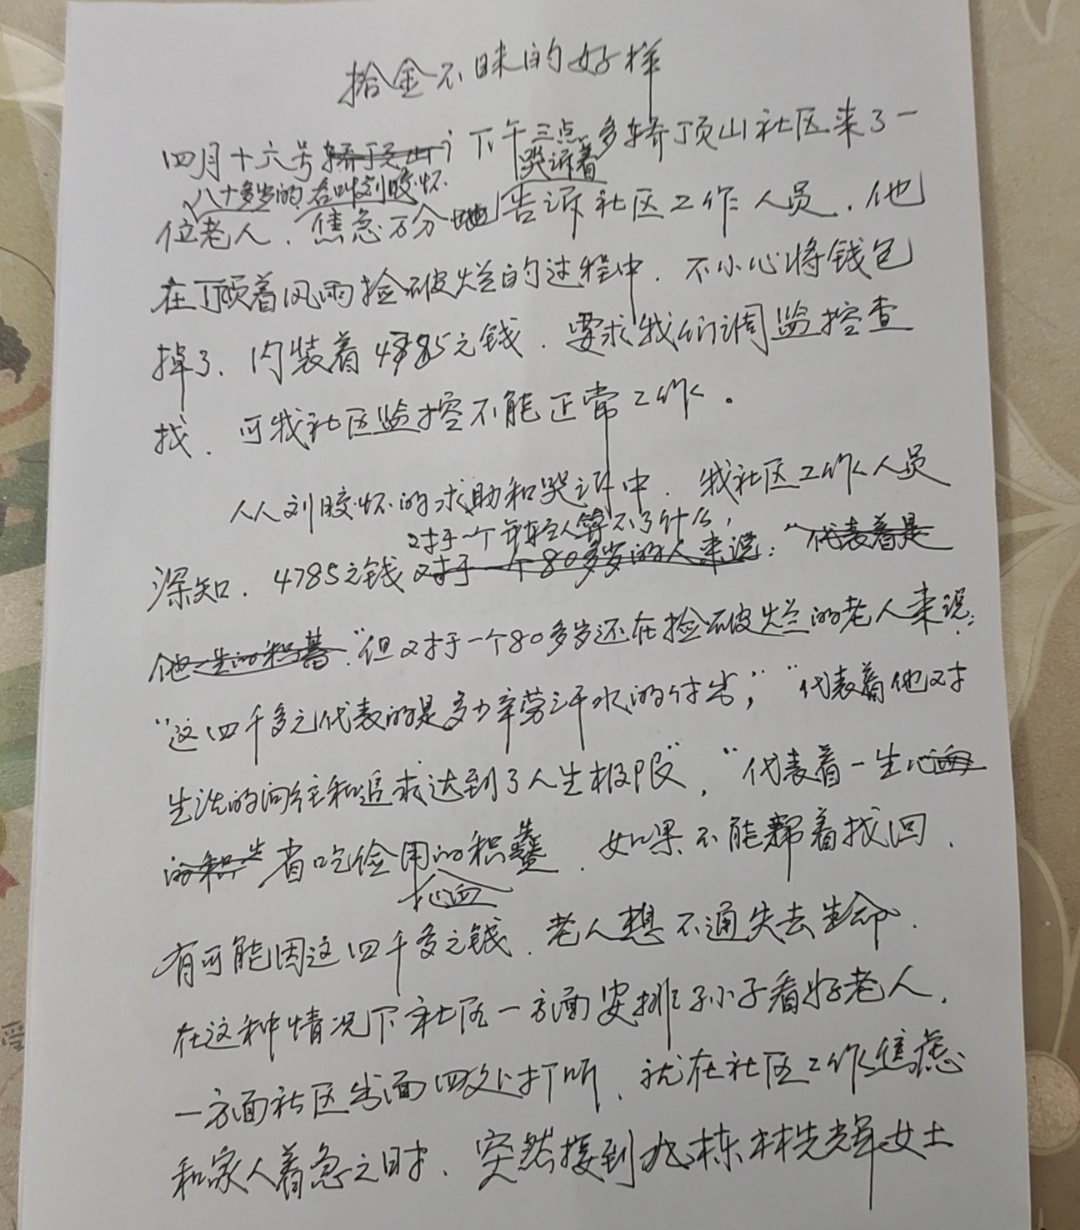 拾金不昧的好样
四月十六号轿顶山，下午三点多轿顶山社区来了一
哭诉着
八十多岁的 名叫刘胶怀
位老人、焦急万分地告诉社区工作人员、他
在顶着风雨捡破烂的过程中、不小心将钱包
掉了、内装着4785元钱、要求我们调监控查
找、可我社区监控不能正常工作。
从刘胶怀的求助和哭诉中、我社区工作人员
对于一个年轻人算不了什么，
深知、4785元钱对于一个80多岁的人来说："代表着是
他一生的积蓄"但对于一个80多岁还在捡破烂的老人来说：
"这四千多元代表的是多少辛劳汗水的付出"，"代表着他对
生活的向往和追求达到了人生极限"，"代表着一生心血
的积 省吃俭用的积蓄、如果不能帮着找回、
心血
有可能因这四千多元钱、老人想不通失去生命、
在这种情况下社区一方面安排孙子看好老人、
一方面社区出面四处打听、就在社区工作焦虑
和家人着急之时、突然接到九栋林先辉女士